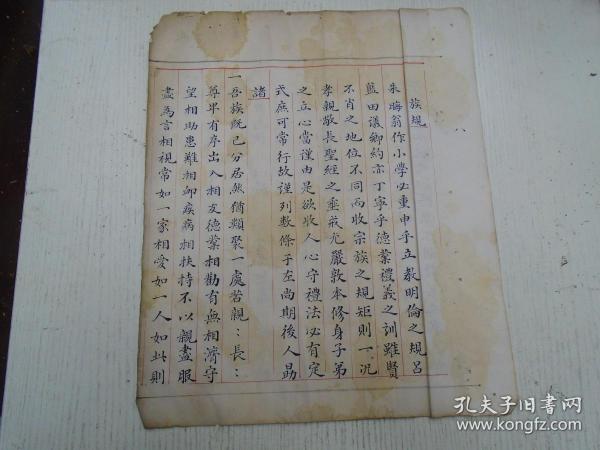 族規
朱晦翁作小學必重申乎立教明倫之規呂
藍田議鄉約亦丁寧乎德業禮義之訓雖賢
不肖之地位不同而收宗族之規矩則一況
孝親敬長聖經之垂戒尤嚴敦本修身子弟
之立心當謹由是欲收人心守禮法必有定
式庶可常行故謹列數條于左尚期後人勗
諸
一吾族既已分居然猶類聚一處若親長:
尊卑有序出入相友德業相勸有無相濟守
望相助患難相卹疾病相扶持不以親盡服
盡為言相視常如一家相愛如一人如此則
孔夫子旧书网
www.kongfz.com